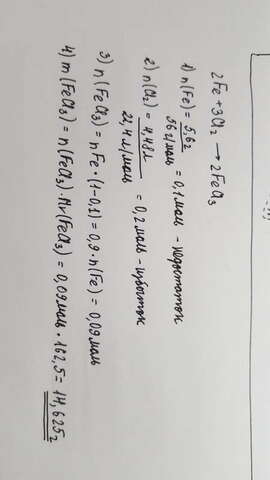 2Fe + 3Cl2 → 2FeCl3
1) n(Fe) = 5,6г / 56г/моль = 0,1 моль - недостаток
2) n(Cl2) = 4,48л / 22,4 л/моль = 0,2 моль - избыток
3) n(FeCl3) = nFe · (1-0,1) = 0,9 · n(Fe) = 0,09 моль
4) m(FeCl3) = n(FeCl3) · Mr(FeCl3) = 0,09 моль · 162,5 = 14,625г